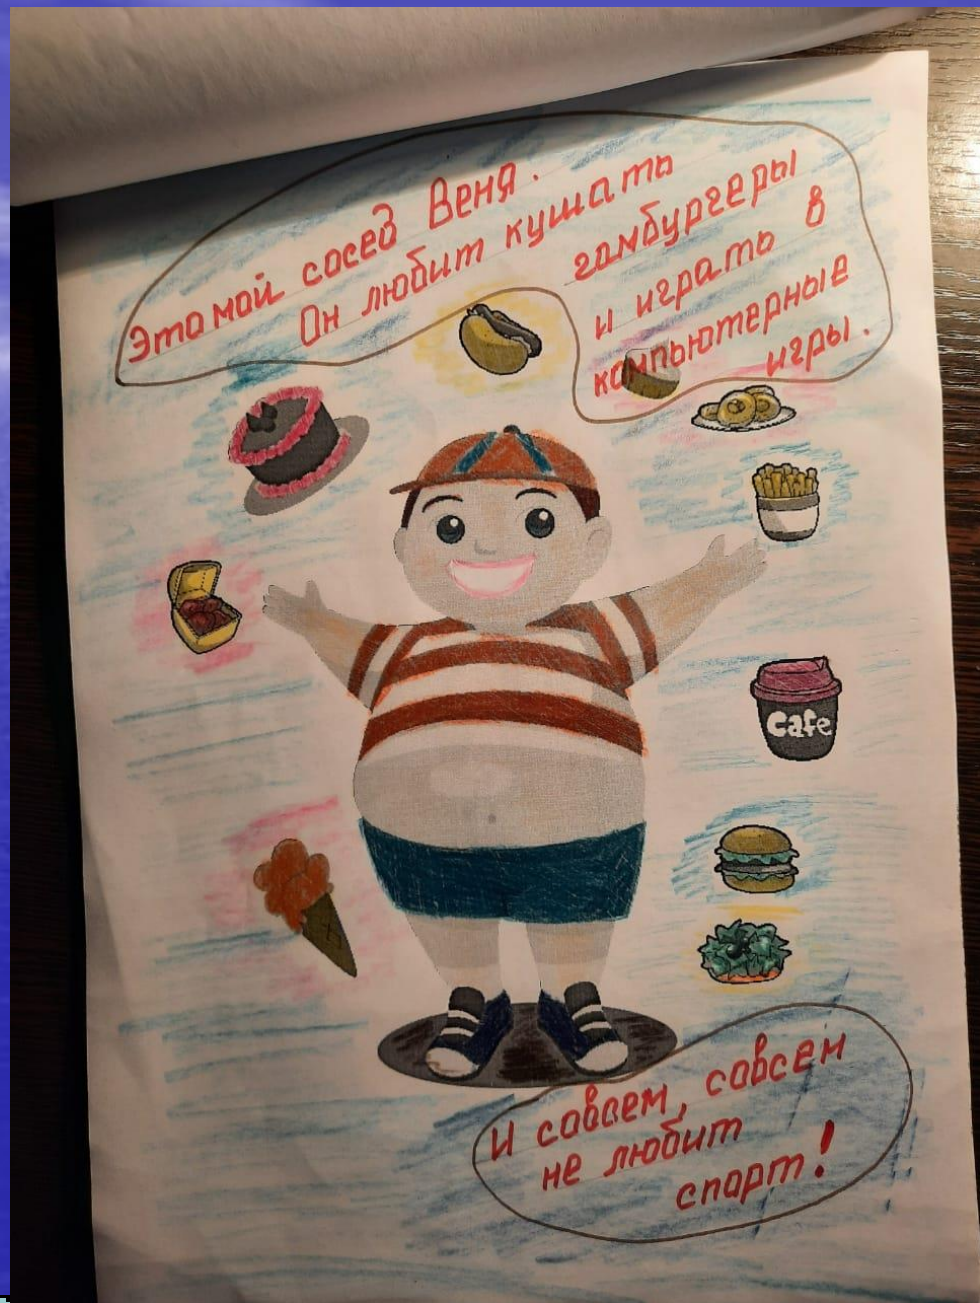 Это мой сосед Веня.
Он любит кушать
гамбургеры
и играть в
компьютерные
игры.
Cafe
И совсем, совсем
не любит
спорт!